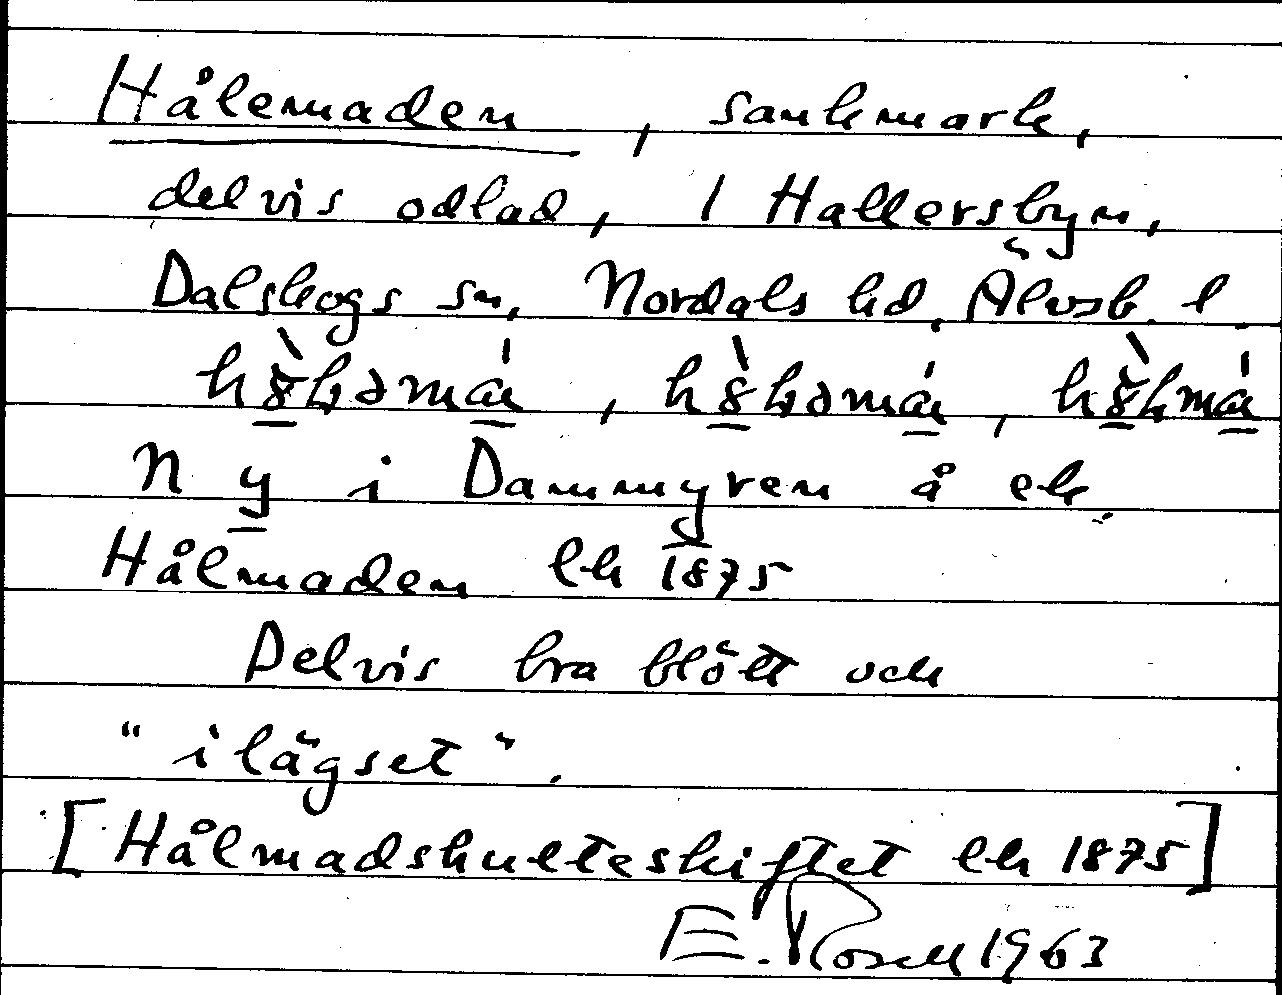 Hålemaden, sankmark,
delvis odlad, i Hallersbyn,
Dalskogs sn, Nordals hd, Älvsb. l.
N y i Dammyren å ek
Hålmaden lh 1875
Delvis bra blött och
"ilägset".
[Hålmadshulteskiftet lh 1875]
E. Rosell 1963